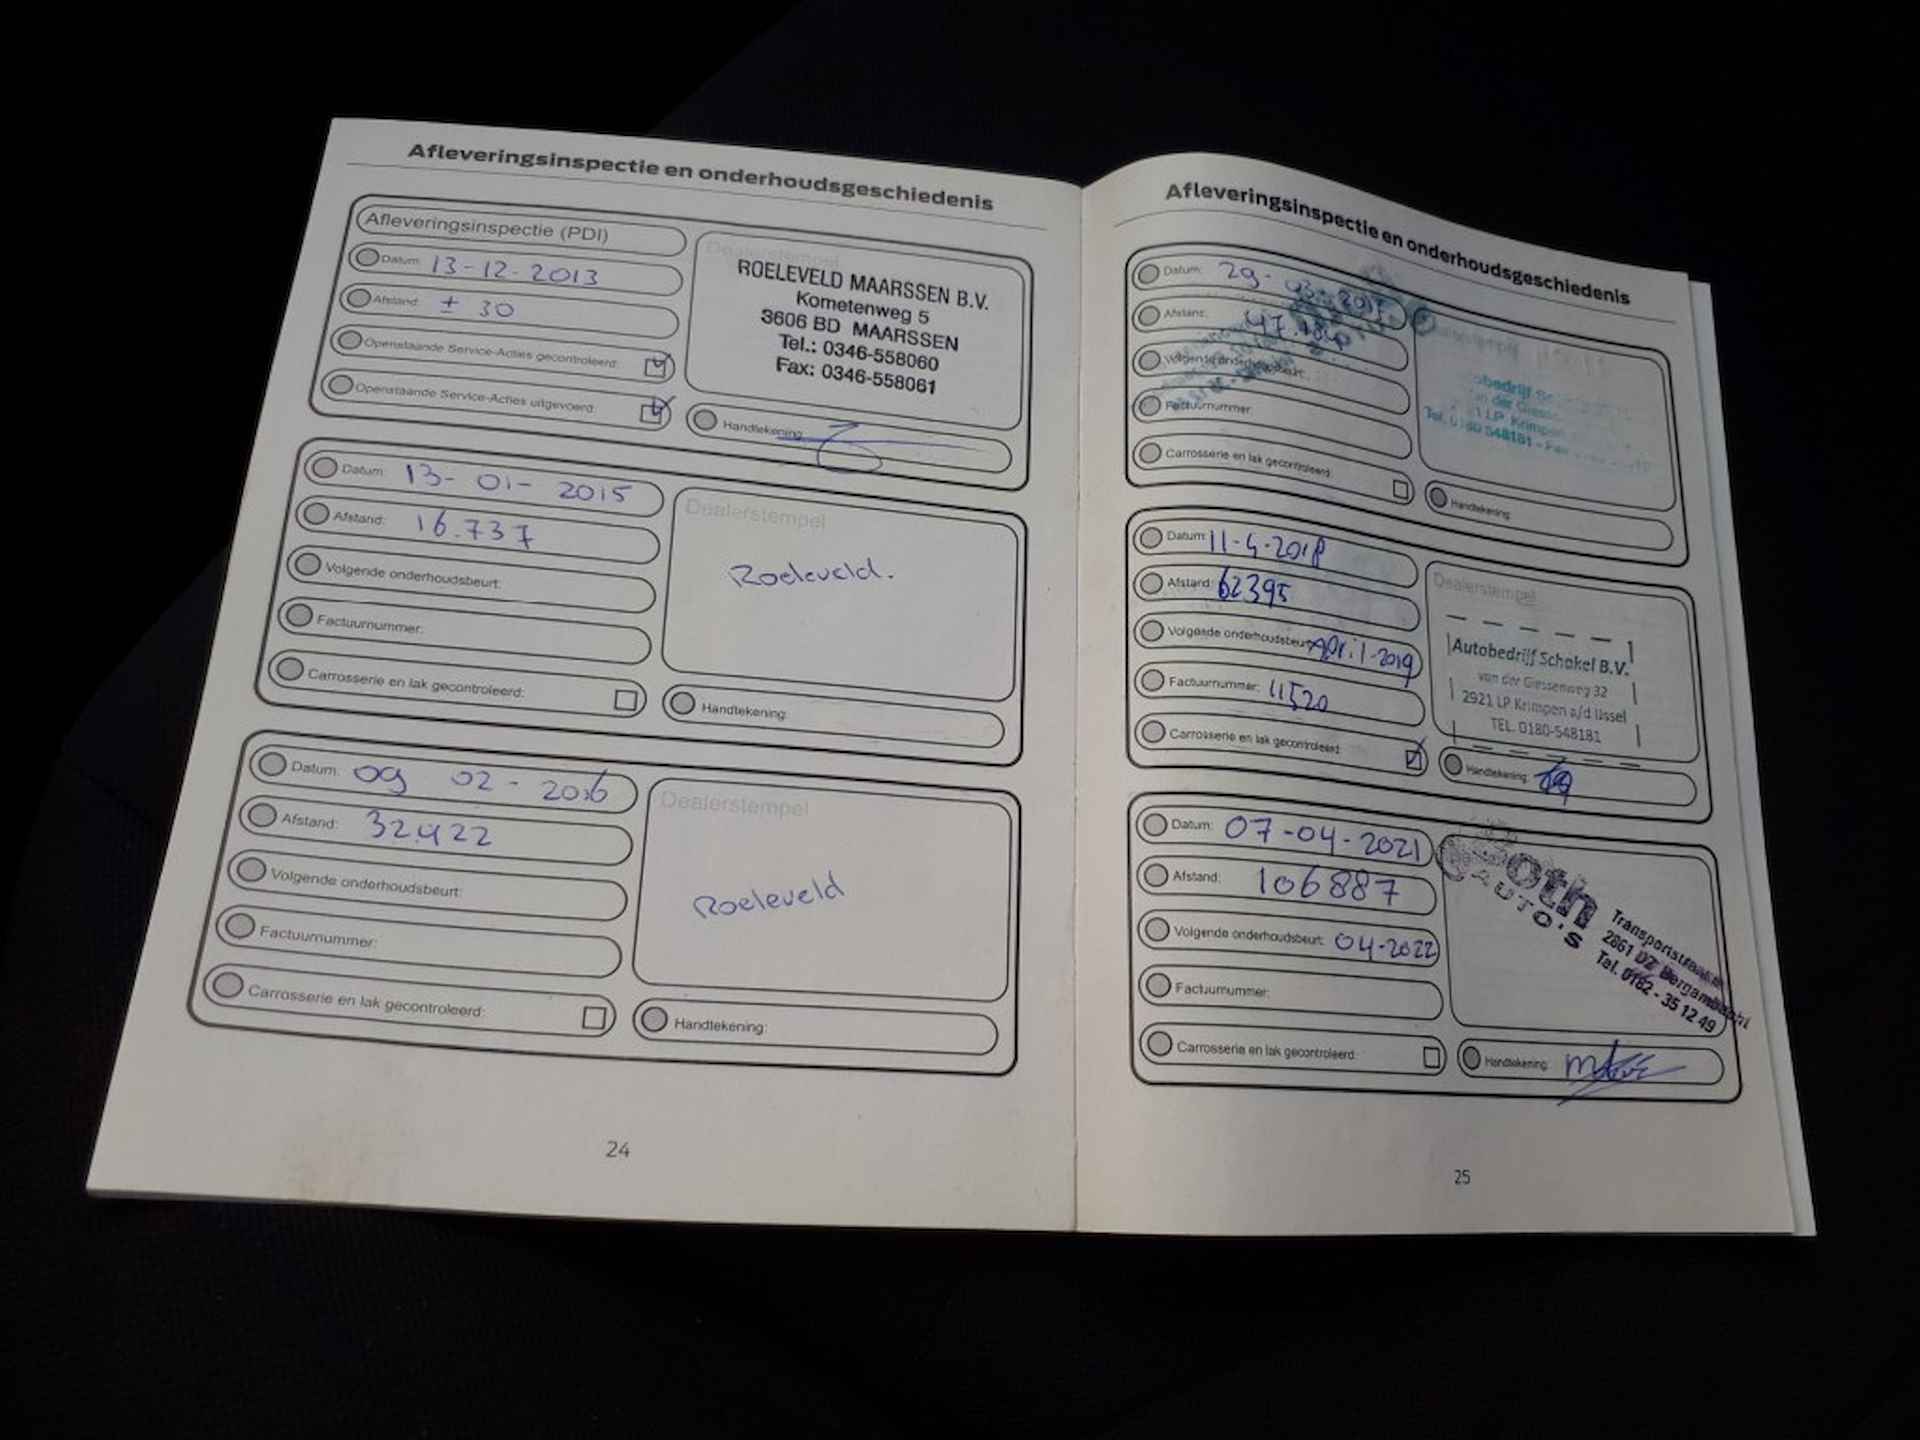 Afleveringsinspectie en onderhoudsgeschiedenis
Afleveringsinspectie (PDI)
Datum: 13-12-2013
Afstand: ± 30
Openstaande Service-Acties gecontroleerd:
Openstaande Service-Acties uitgevoerd:
Dealerstempel
ROELEVELD MAARSSEN B.V.
Kometenweg 5
3606 BD MAARSSEN
Tel.: 0346-558060
Fax: 0346-558061
Handtekening:
Datum: 13-01-2015
Afstand: 16.737
Volgende onderhoudsbeurt:
Factuurnummer:
Carrosserie en lak gecontroleerd:
Dealerstempel
Roeleveld.
Handtekening:
Datum: 09 02-2016
Afstand: 32422
Volgende onderhoudsbeurt:
Factuurnummer:
Carrosserie en lak gecontroleerd:
Dealerstempel
Roeleveld
Handtekening:
24
Afleveringsinspectie en onderhoudsgeschiedenis
Datum: 29-03-
Afstand: 47.
Volgende onderhoudsbeurt:
Factuurnummer:
Carrosserie en lak gecontroleerd:
der
LP. Krimpen
Tel. 0180 548181 - Fax
Handtekening:
Datum: 11-4-2018
Afstand: 62395
Volgende onderhoudsbeurt: April-2019
Factuurnummer: 11520
Carrosserie en lak gecontroleerd:
Dealerstempel
Autobedrijf Schakel B.V.
van der Giessenweg 32
2921 LP Krimpen a/d IJssel
TEL. 0180-548181
Handtekening:
Datum: 07-04-2021
Afstand: 106887
Volgende onderhoudsbeurt: 04-2022
Factuurnummer:
Carrosserie en lak gecontroleerd:
AUTO'S
2861 DZ Bergambacht
Tel. 0182 - 35 12 49
Handtekening:
25